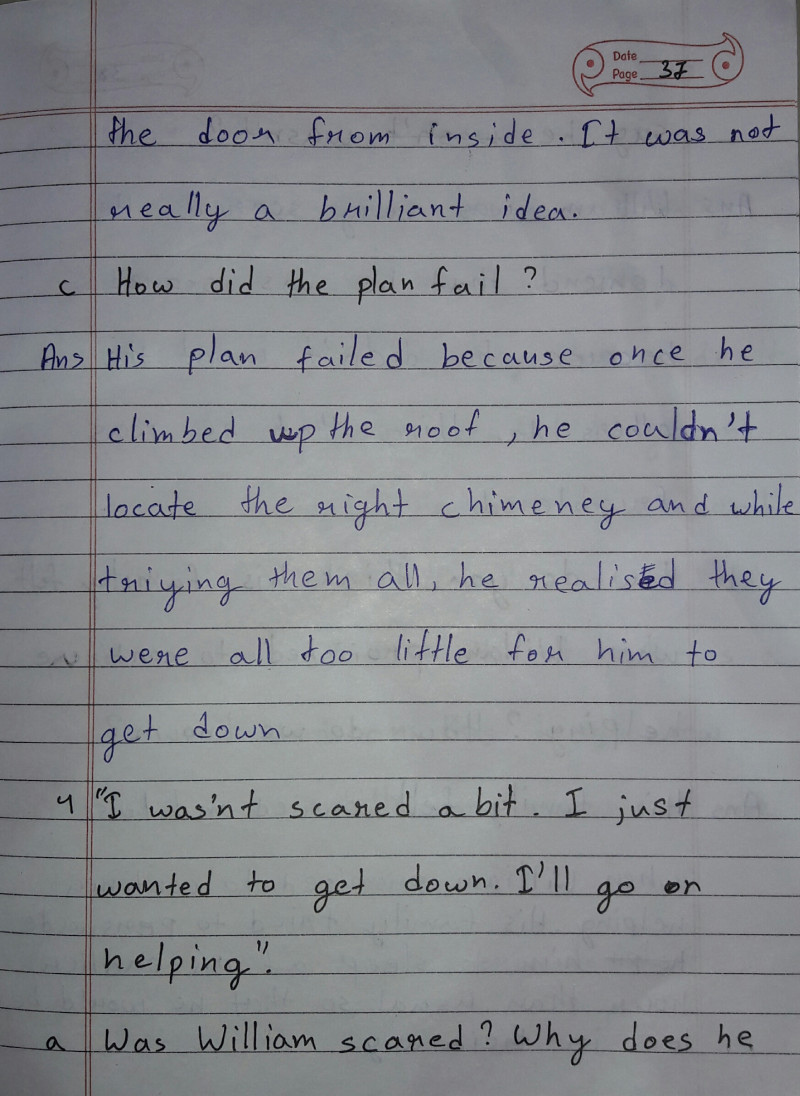 Date
Page 37
the door from inside. It was not
really a brilliant idea.
c How did the plan fail ?
Ans His plan failed because once he
climbed up the roof, he couldn't
locate the right chimeney and while
triying them all, he realised they
were all too little for him to
get down
4 "I was'nt scared a bit. I just
wanted to get down. I'll go on
helping".
a Was William scared? Why does he